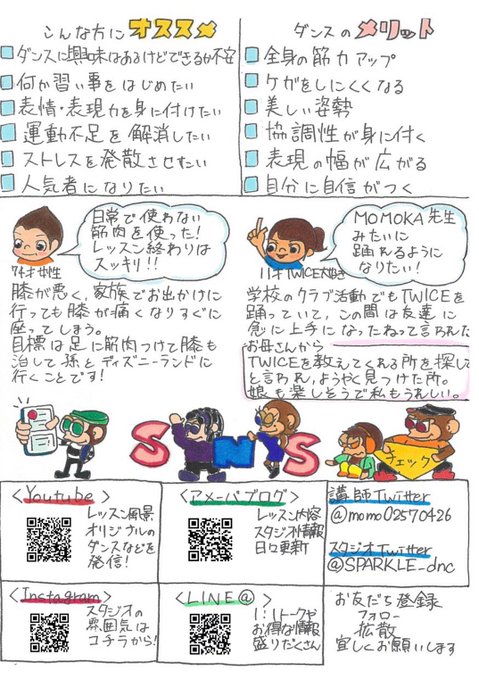 こんな方にオススメ
ダンスに興味はあるけどできるか不安
何か習い事をはじめたい
表情・表現力を身に付けたい
運動不足を解消したい
ストレスを発散させたい
人気者になりたい
ダンスのメリット
全身の筋力アップ
ケガをしにくくなる
美しい姿勢
協調性が身に付く
表現の幅が広がる
自分に自信がつく
日常で使わない
筋肉を使った!
レッスン終わりは
スッキリ!!
74才女性
膝が悪く、家族でお出かけに
行っても膝が痛くなりすぐに
座ってしまう。
目標は足に筋肉つけて膝も
治して孫とディズニーランドに
行くことです!
MOMOKA先生
みたいに
踊れるように
なりたい!
11才TWICE大好き
学校のクラブ活動でもTWICEを
踊っていて、この間は友達に
急に上手になったねって言われた
お母さんから
TWICEを教えてくれる所を探して
と言われ、ようやく見つけた所。
娘も楽しそうで私もうれしい。
SNS
チェック
<Youtube>
レッスン風景
オリジナルの
ダンスなどを
発信!
<アメーバブログ>
レッスン内容
スタジオ情報
日々更新
講師Twitter
@momo02570426
スタジオTwitter
@SPARKLE_dnc
<Instagram>
スタジオの
雰囲気は
コチラから!
<LINE@>
1:1トークや
お得な情報
盛りだくさん
お友だち登録
フォロー
拡散
宜しくお願いします